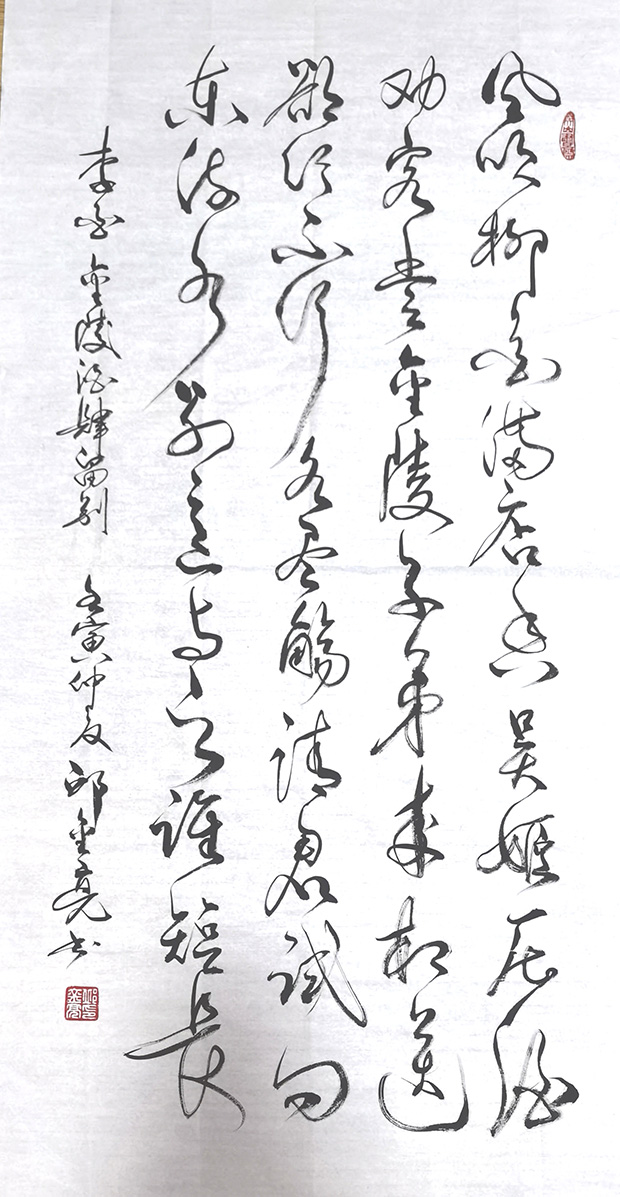 风吹柳花满店香吴姬压酒
劝客尝金陵子弟来相送
欲行不行各尽觞请君试问
东流水别意与之谁短长
李白金陵酒肆留别 壬寅仲夏 邱金亮书